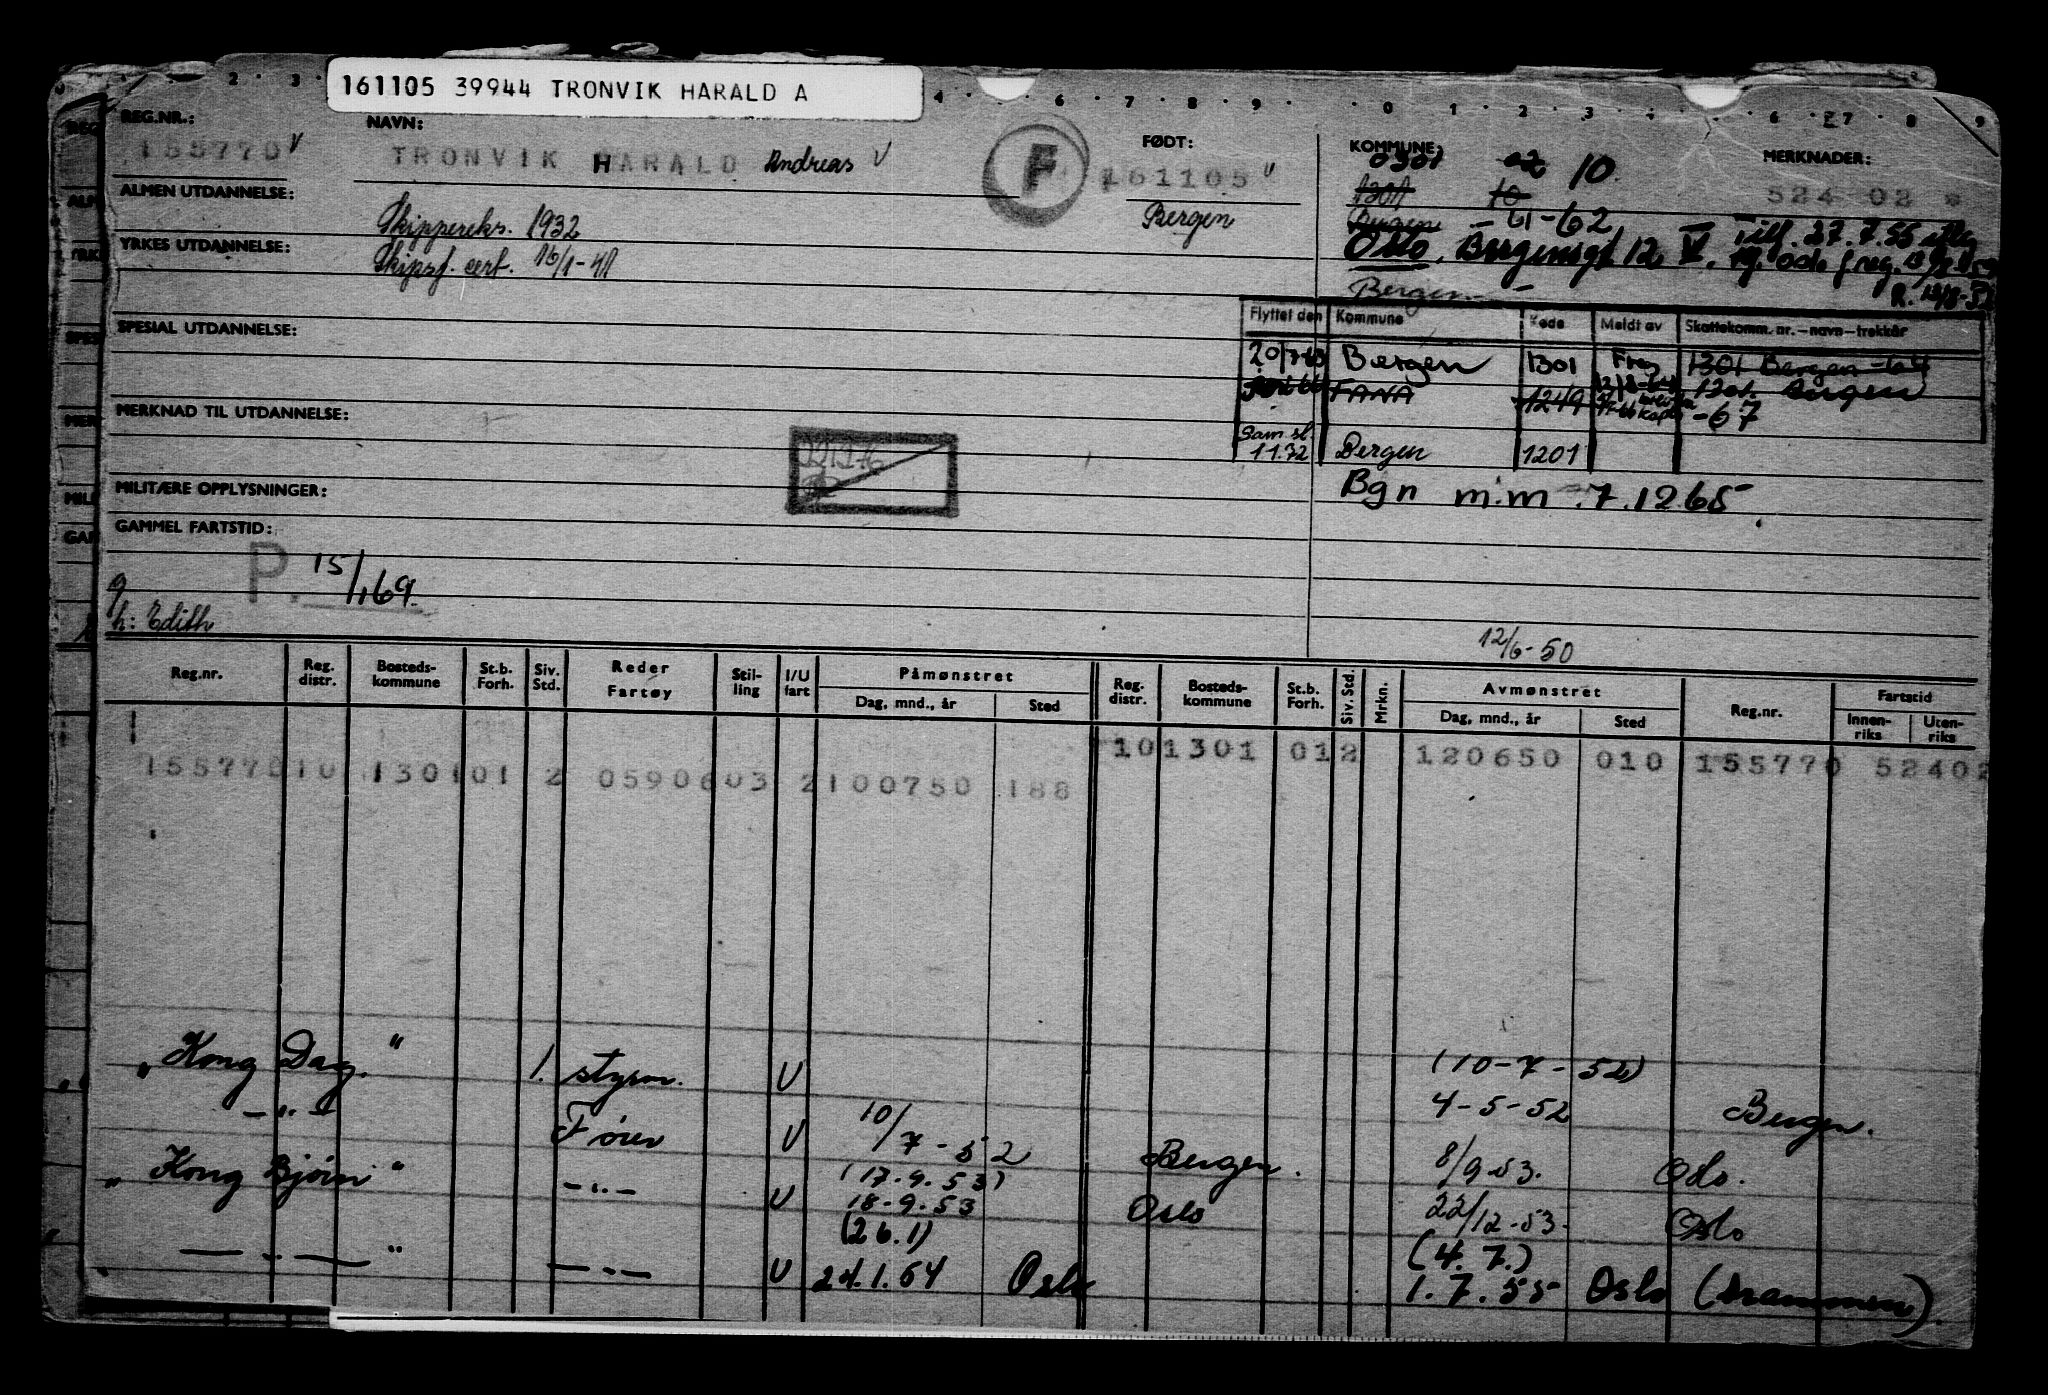 161105 39944 TRONVIK HARALD A
REG.NR.: NAVN: FØDT: KOMMUNE: MERKNADER:
155770 V TRONVIK HARALD Andreas V F 161105 V 0301 02 10
1301 10 524 02 *
ALMEN UTDANNELSE: Skippereks. 1932 Bergen Bergen -61-62
YRKES UTDANNELSE: Skipsf. cert. 16/1-41 Oslo, Bergensgt 12 V.
Bergen
R. 12/8-
SPESIAL UTDANNELSE:
Flyttet den Kommune Kode Meldt av Skattekomm. nr.-navn-trekkår
20/7-63 Bergen 1301 Freg 1301 Bergen -64
FANA 1249 1301. Bergen
-67
MERKNAD TIL UTDANNELSE:
Sam.sl.
1.1.72 Bergen 1201
MILITÆRE OPPLYSNINGER: Bgn m.m. 7.12.65
GAMMEL FARTSTID:
P. 15/1 69.
g
h: Edith
12/6-50
Reg.nr. Reg. distr. Bosteds-kommune St.b. Forh. Siv. Std. Reder Fartøy Stil-ling I/U fart Påmønstret Dag, mnd., år Sted Reg. distr. Bosteds-kommune St.b. Forh. Siv. Std. Mrkn. Avmønstret Dag, mnd., år Sted Reg.nr. Fartstid Innen-riks Uten-riks
101301 012 120650 010 155770 52402
155770 10 1301 01 2 0590603 2 100750 188
"Kong Dag." 1. styrm. U (10-7-52)
4-5-52 Bergen.
-"- Fører U 10/7-52 Bergen. 8/9-53. Oslo.
(17.9.53)
"Kong Bjørn" -"- U 18-9-53 Oslo 22/12-53. Oslo
(26.1) (4.7.)
-"- -"- U 24.1.54 Oslo 1.7.55 Oslo (Drammen).